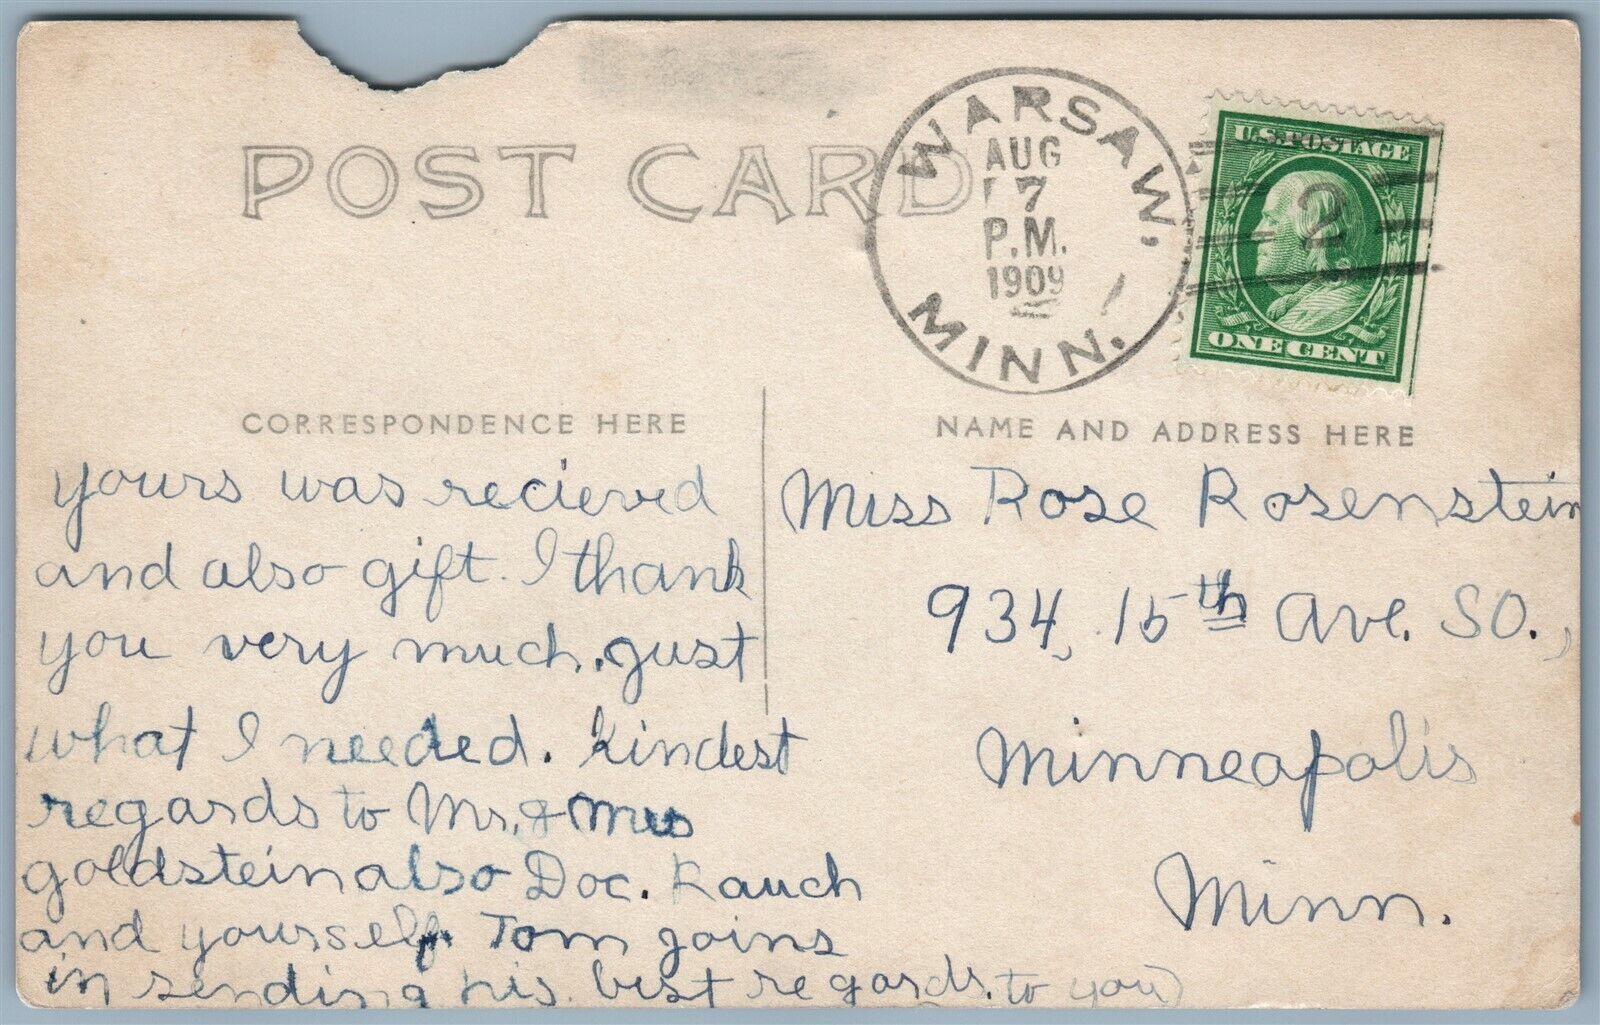 POST CARD
WARSAW, MINN.
AUG
17
P.M.
1909
U.S. POSTAGE
2
ONE CENT
CORRESPONDENCE HERE
NAME AND ADDRESS HERE
yours was recieved
and also gift. I thank
you very much. just
what I needed. kindest
regards to Mr. & Mrs
goldstein also Doc. Rauch
and yourself. Tom joins
in sending his best regards. to you
Miss Rose Rosenstein
934, 15th Ave. SO.,
Minneapolis
Minn.